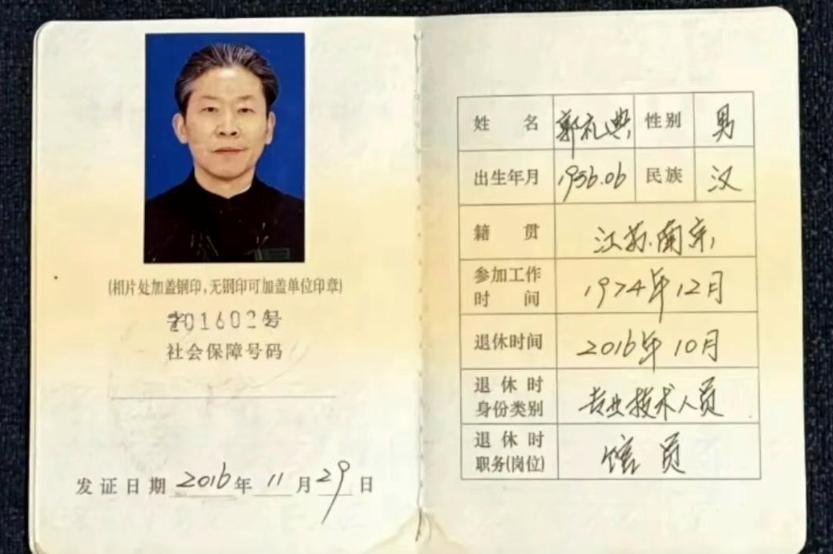 (相片处加盖钢印,无钢印可加盖单位印章)
201602号
社会保障号码
发证日期 2016年 11月 29日
姓名 郭礼典 性别 男
出生年月 1956.06 民族 汉
籍贯 江苏.南京
参加工作时间 1974年12月
退休时间 2016年10月
退休时身份类别 专业技术人员
退休时职务(岗位) 馆员